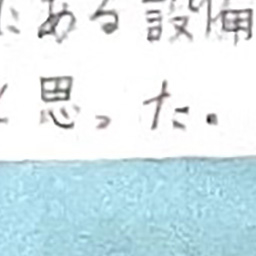 にある設備
と思った。